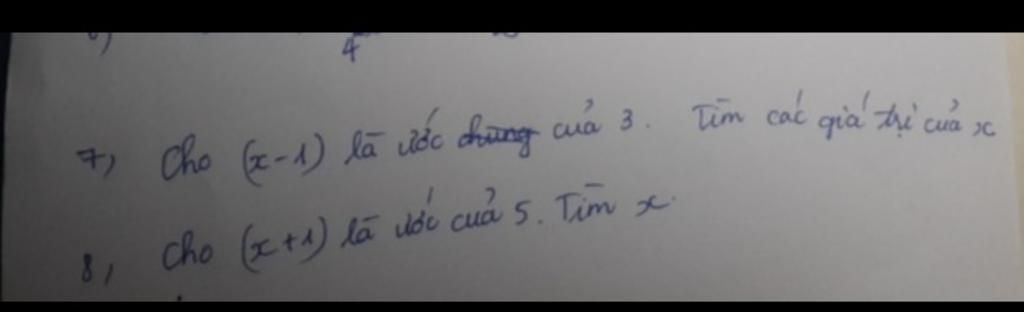 4
7, Cho (x-1) là ước chung của 3. Tìm các giá trị của x
8, Cho (x+1) là ước của 5. Tìm x.